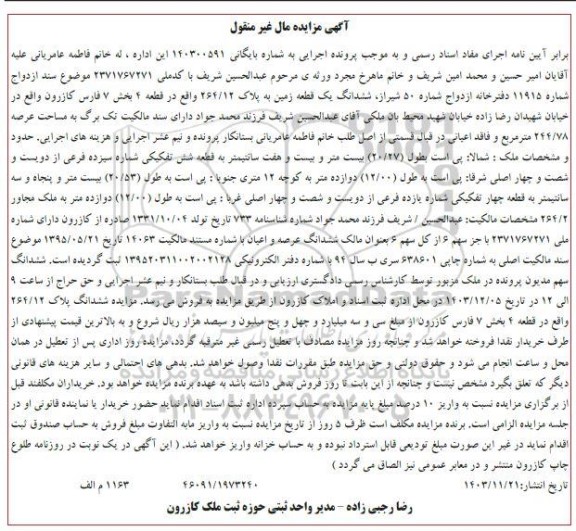 آگهی مزایده مال غیر منقول
برابر آیین نامه اجرای مفاد اسناد رسمی و به موجب پرونده اجرایی به شماره بایگانی ۱۴۰۳۰۰۵۹۱ این اداره ، له خانم فاطمه عامریانی علیه
آقایان امیر حسین و محمد امین شریف و خانم ماهرخ مجرد ورثه ی مرحوم عبدالحسین شریف با کدملی ۲۳۷۱۷۶۷۲۷۱ موضوع سند ازدواج
شماره ۱۱۹۱۵ دفترخانه ازدواج شماره ۵۰ شیراز، ششدانگ یک قطعه زمین به پلاک ۲۶۴/۱۲ واقع در قطعه ۴ بخش ۷ فارس کازرون واقع در
خیابان شهیدان رضا زاده خیابان شهید محیط بان ملکی آقای عبدالحسین شریف فرزند محمد جواد دارای سند مالکیت تک برگ به مساحت عرصه
۲۴۴/۷۸ مترمربع و فاقد اعیانی در قبال قسمتی از اصل طلب خانم فاطمه عامریانی بستانکار پرونده و نیم عشر اجرایی و هزینه های اجرایی. حدود
و مشخصات ملک : شمالا: پی است بطول (۲۰/۲۷) بیست متر و بیست و هفت سانتیمتر به قطعه شش تفکیکی شماره سیزده فرعی از دویست و
شصت و چهار اصلی شرقا: پی است به طول (۱۲/۰۰) دوازده متر به کوچه ۱۲ متری جنوبا : پی است به طول (۲۰/۵۳) بیست متر و پنجاه و سه
سانتیمتر به قطعه چهار تفکیکی شماره یازده فرعی از دویست و شصت و چهار اصلی غربا : پی است به طول (۱۲/۰۰) دوازده متر به ملک مجاور
۲۶۴/۲ مشخصات مالکیت: عبدالحسین / شریف فرزند محمد جواد شماره شناسنامه ۷۳۳ تاریخ تولد ۱۳۳۱/۱۰/۰۴ صادره از کازرون دارای شماره
ملی ۲۳۷۱۷۶۷۲۷۱ با جز سهم ۶ از کل سهم ۶ بعنوان مالک ششدانگ عرصه و اعیان با شماره مستند مالکیت ۱۴۰۶۳ تاریخ ۱۳۹۵/۰۵/۲۱ موضوع
سند مالکیت اصلی به شماره چاپی ۶۳۸۶۰۱ سری ب سال ۹۴ با شماره دفتر الکترونیکی ۱۳۹۵۲۰۳۱۱۰۰۲۰۰۲۱۲۸ ثبت گردیده است. ششدانگ
سهم مدیون پرونده در ملک مزبور توسط کارشناس رسمی دادگستری ارزیابی و در قبال طلب بستانکار و نیم عشر اجرایی و حق حراج از ساعت ۹
الی ۱۲ در تاریخ ۱۴۰۳/۱۲/۰۵ در محل اداره ثبت اسناد و املاک کازرون از طریق مزایده به فروش می رسد. مزایده ششدانگ پلاک ۲۶۴/۱۲
واقع در قطعه ۴ بخش ۷ فارس کازرون از مبلغ سی و سه میلیارد و چهل و پنج میلیون و سیصد هزار ریال شروع و به بالاترین قیمت پیشنهادی از
طرف خریدار نقدا فروخته خواهد شد و چنانچه روز مزایده مصادف با تعطیل رسمی غیر مترقبه گردد، مزایده روز اداری پس از تعطیل در همان
محل و ساعت انجام می شود و حقوق دولتی و حق مزایده طبق مقررات نقدا وصول خواهد شد. بدهی های احتمالی و سایر هزینه های قانونی
دیگر که تعلق بگیرد مشخص نیست و چنانچه از این بابت تا روز فروش بدهی داشته باشد به عهده برنده مزایده خواهد بود. خریداران مکلفند قبل
از برگزاری مزایده نسبت به واریز ۱۰ درصد مبلغ پایه مزایده به حساب سپرده اداره ثبت اسناد اقدام نماید حضور خریدار یا نماینده قانونی او در
جلسه مزایده الزامی است. برنده مزایده مکلف است ظرف ۵ روز از تاریخ مزایده نسبت به واریز مابه التفاوت مبلغ فروش به حساب صندوق ثبت
اقدام نماید در غیر این صورت مبلغ تودیعی قابل استرداد نبوده و به حساب خزانه واریز خواهد شد. ( این آگهی در یک نوبت در روزنامه طلوع
چاپ کازرون منتشر و در معابر عمومی نیز الصاق می گردد )
تاریخ انتشار: ۱۴۰۳/۱۱/۲۱ ۴۶۰۹۱/۱۹۷۳۲۴۰ ۱۱۶۳ م الف
رضا رجبی زاده - مدیر واحد ثبتی حوزه ثبت ملک کازرون